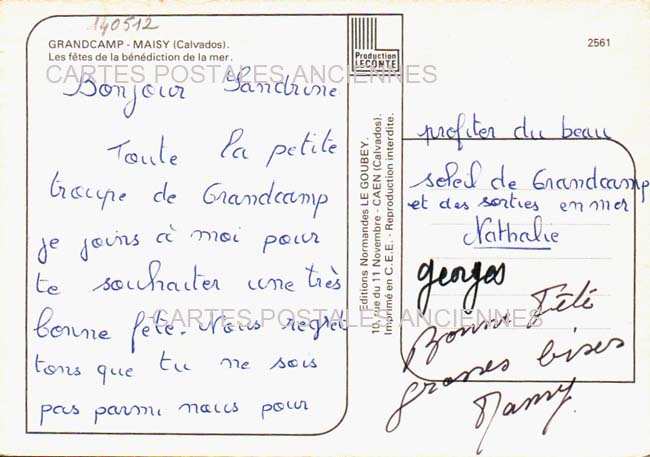 140512
GRANDCAMP - MAISY (Calvados).
Les fêtes de la bénédiction de la mer.
CARTES POSTALES ANCIENNES
Bonjour Sandrine
Toute la petite
troupe de Grandcamp
je joins à moi pour
te souhaiter une très
bonne fête. Nous regret
tons que tu ne sois
pas parmi nous pour
Production
LECONTE
Editions Normandes LE GOUBEY.
10, rue du 11 Novembre - CAEN (Calvados).
Imprimé en C.E.E. - Reproduction interdite.
2561
profiter du beau
soleil de Grandcamp
et des sorties en mer
Nathalie
georges
CARTES POSTALES ANCIENNES
Bonne Fête
grosses bises